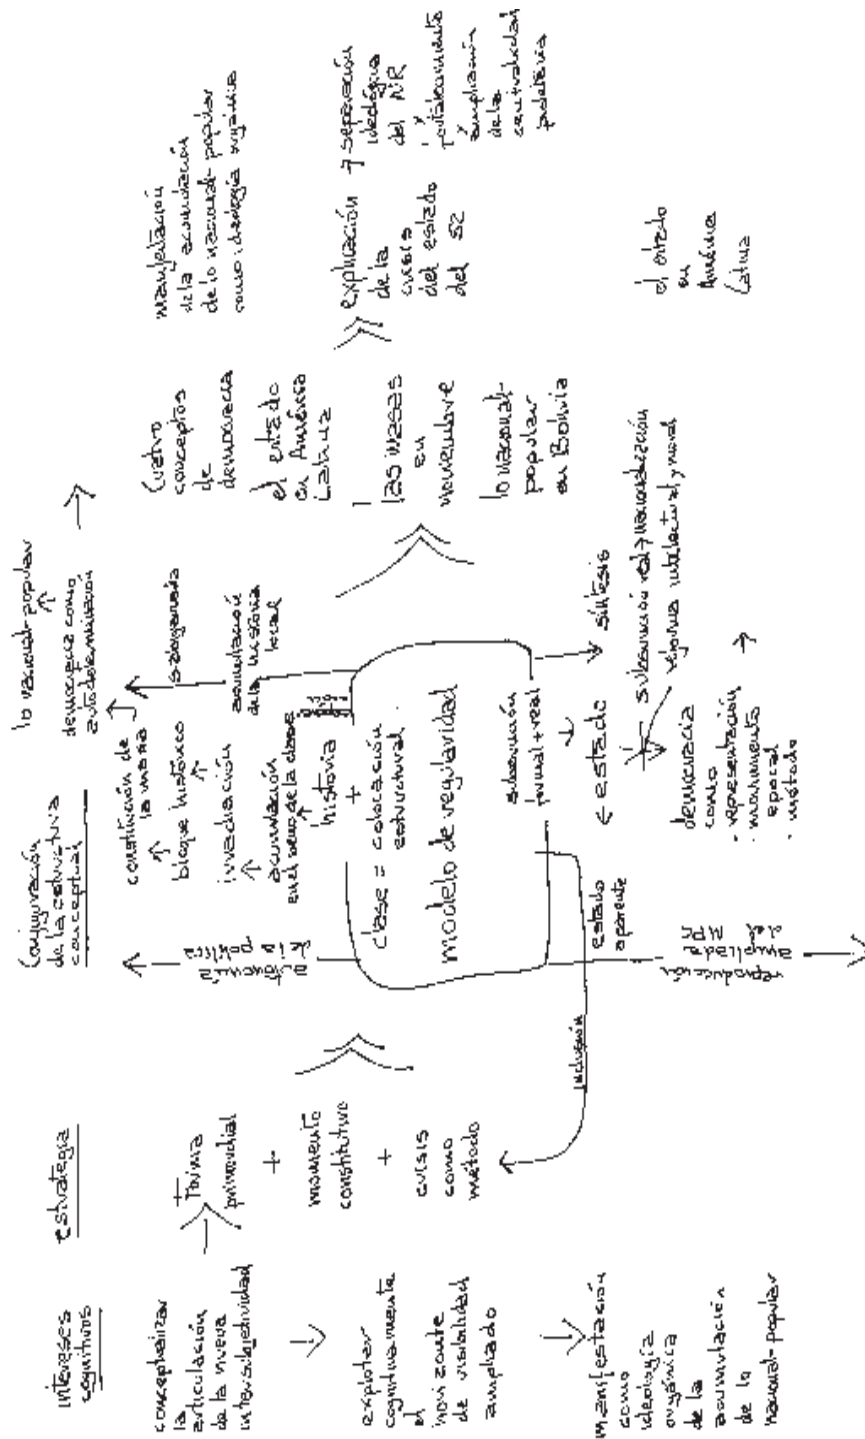 intereses
cognitivos
conceptualizar
la
articulación
de la nueva
intersubjetividad
explotar
cognitivamente
el
horizonte
de visibilidad
ampliado
manifestación
como
ideología
orgánica
de la
acumulación
de lo
nacional-popular
estrategia
forma
primordial
+
momento
constitutivo
+
crisis
como
método
inclusión
Configuración
de la estructura
conceptual
autonomía
de la política
constitución de
la masa
bloque histórico
irradiación
acumulación
en el seno de la clase
historia
+
clase = colocación
estructural
modelo de regularidad
subsunción
formal + real
estado
aparente
reproducción
ampliada
del
MPC
lo nacional-popular
democracia como
autodeterminación
acumulación
de la historia
local
estado
síntesis
subsunción real nacionalización
reforma intelectual y moral
democracia
como
· representación
· movimiento
epocal
· método
Cuatro
conceptos
de
democracia
el estado
en América
Latina
las masas
en
noviembre
lo nacional-
popular
en Bolivia
manifestación
de la acumulación
de lo nacional-popular
como ideología orgánica
explicación
de la
crisis
del estado
del 52
separación
ideológica
del NR
y
fortalecimiento
y
ampliación
de la
centralidad
proletaria
el estado
en
América
Latina